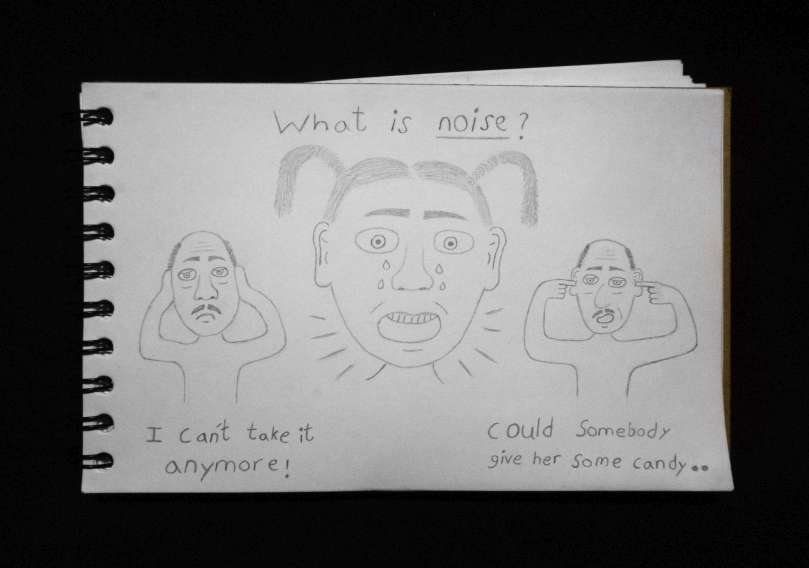 What is noise?
I can't take it
anymore!
Could Somebody
give her some candy..